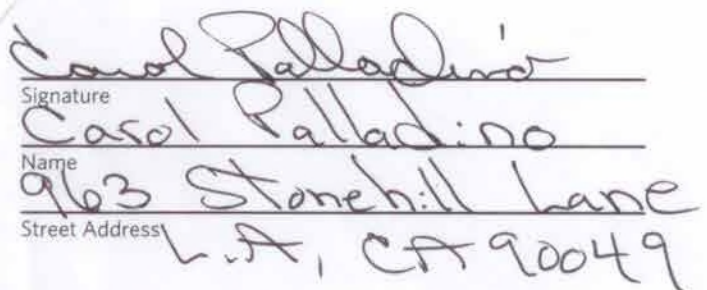 Carol Palladino
Signature
Carol Palladino
Name
963 Stonehill Lane
Street Address
L.A, CA 90049